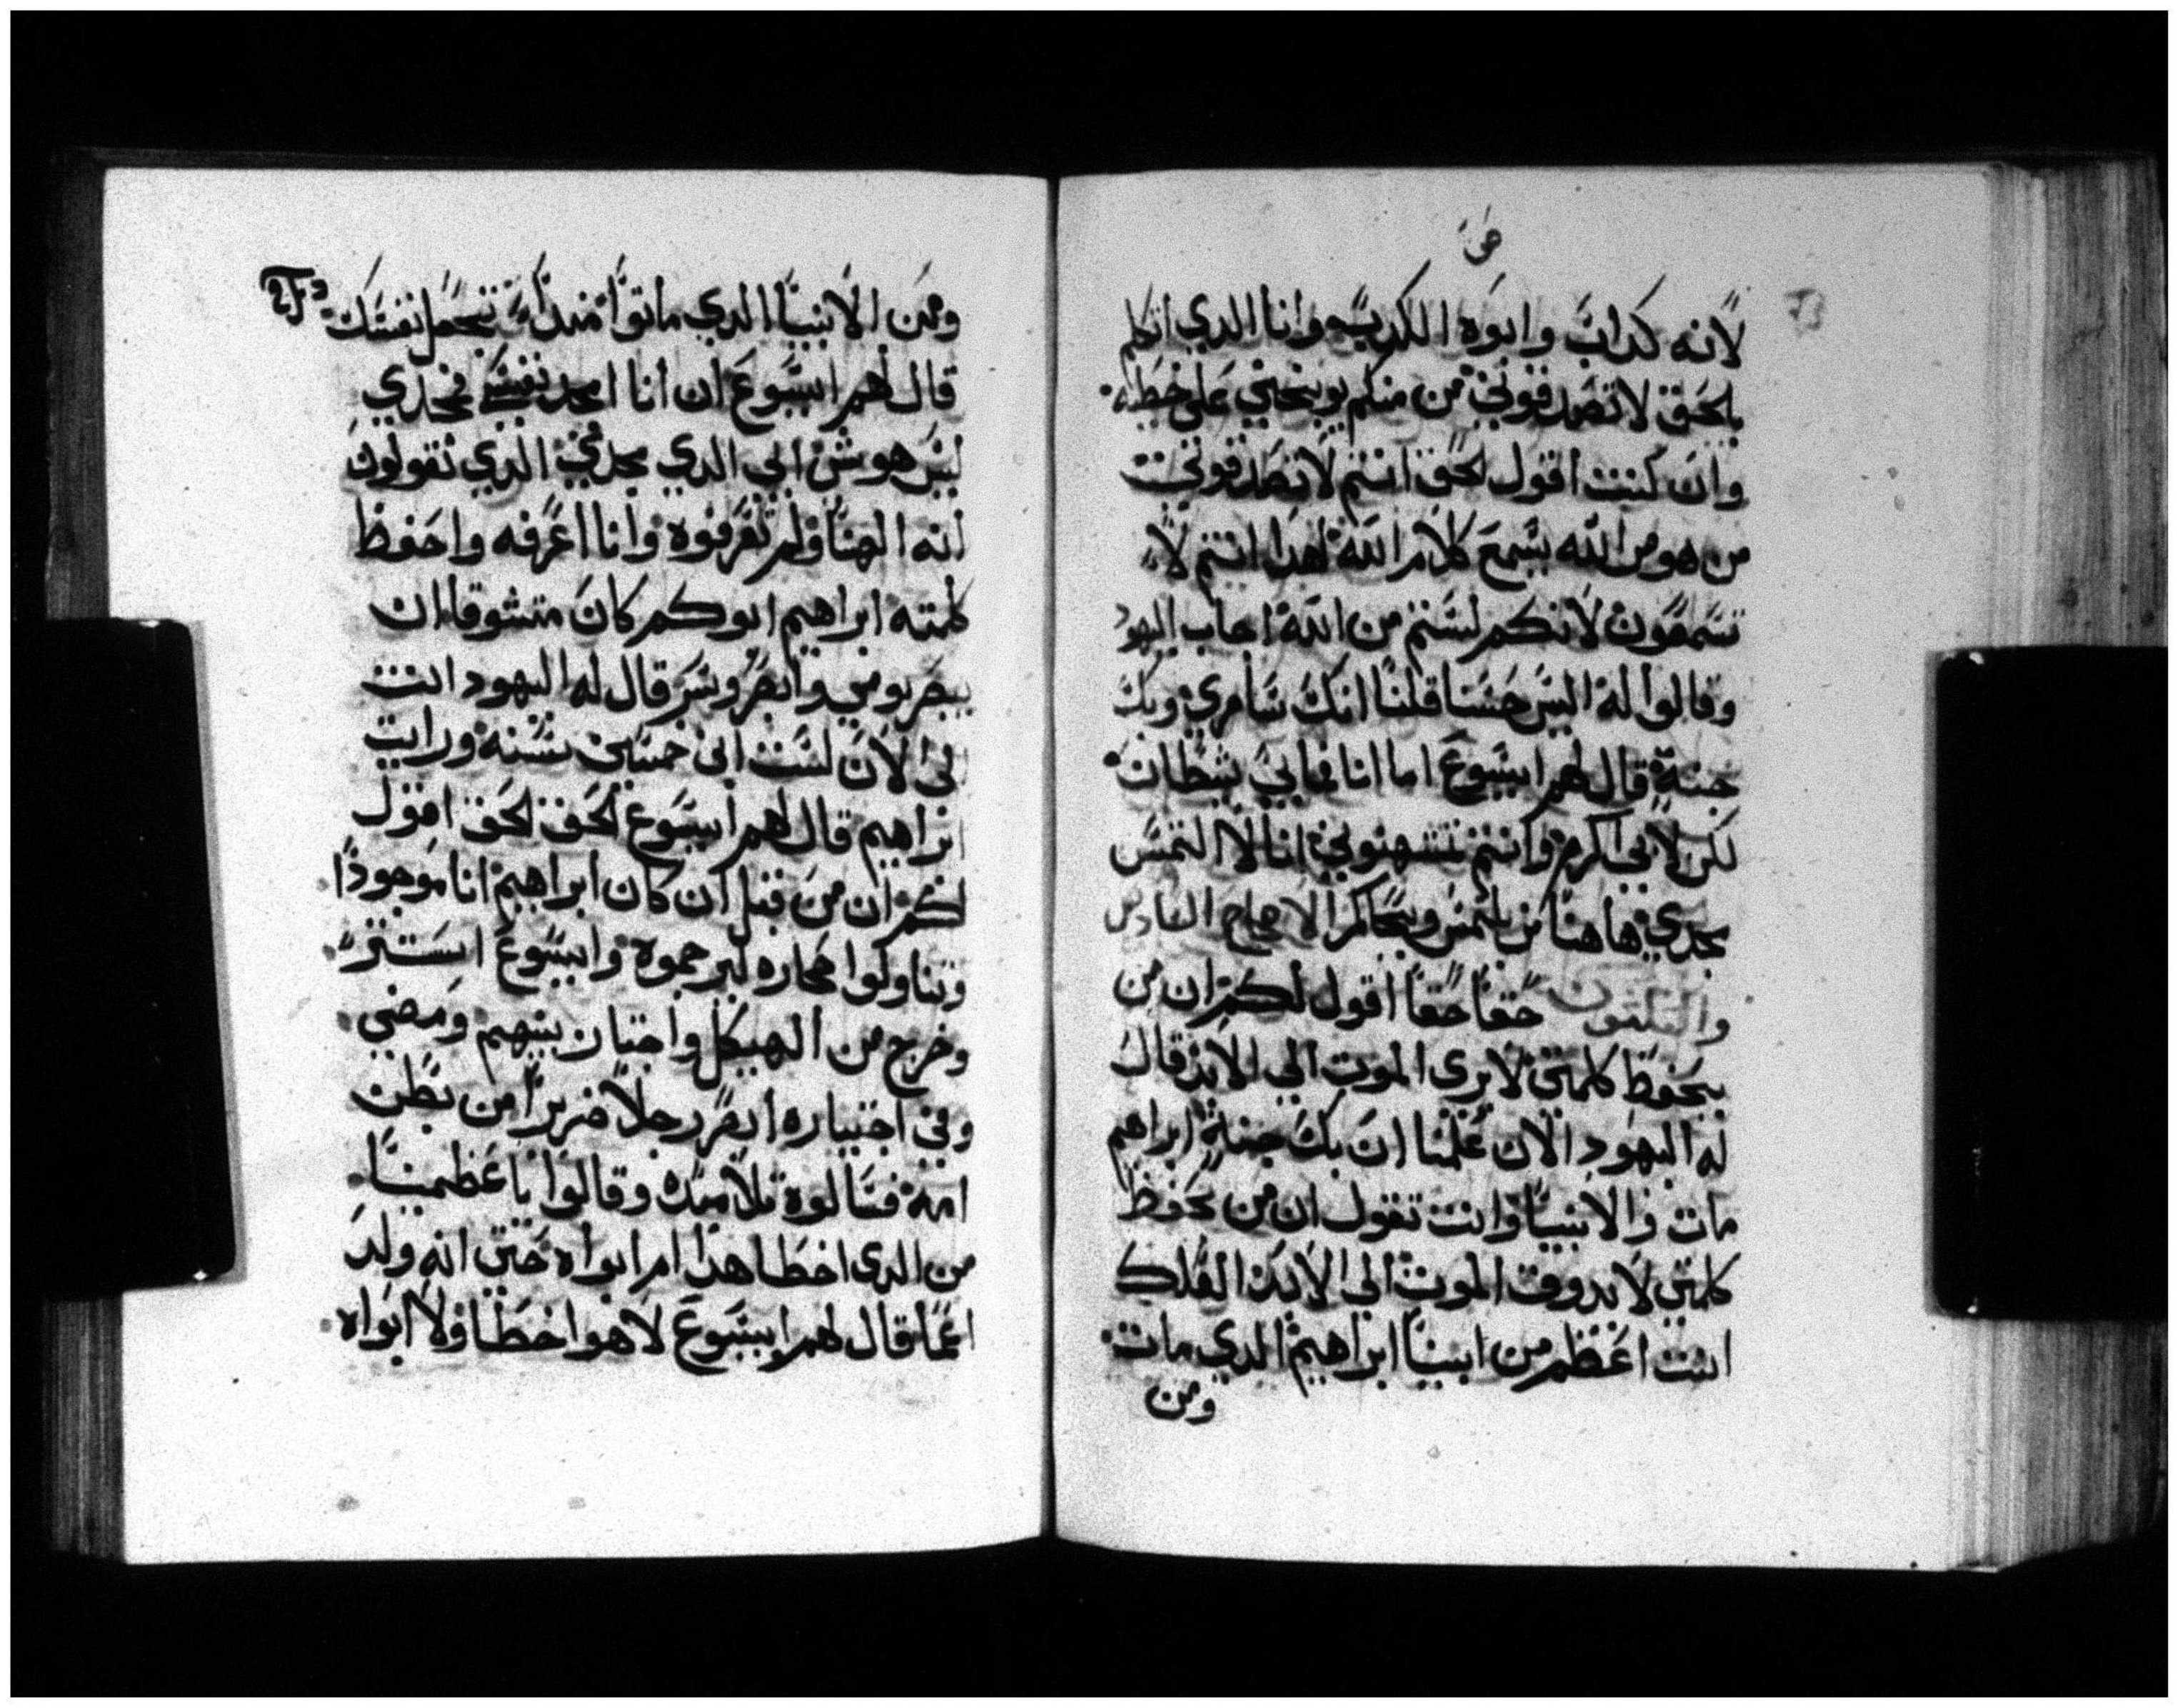 لانه كداب وابوه الكدب وانا الدي اتكلم
بلحق لا تصدقوني من منكم يوبنجني على خطيه
وان كنت اقول لحق انتم لا تصدقوني
من هو من الله يسمع كلام الله لهدا انتم لا
تسمعون لانكم لستم من الله اجاب اليهود
وقالوا له اليس حسنا قلنا انك سامري وبك
جنة قال لهم ايسوع اما انا فما بي شيطان
لكن لابي اكرم وانتم تشتهنوني انا لا التمس
مجدي هاهنا من يلتمس ويحاكم الاصحاح
حقا حقا اقول لكم ان من
يحفوظ كلمتي لا يرى الموت الي الابد قال
له اليهود الان علمنا ان بك جنة ابراهيم
مات والانبيا وانت تقول ان من يحفوظ
كلمتي لا يدوق الموت الى الابد العلك
انت اعظم من ابينا ابراهيم الدي مات
ومن
ومن الانبيا الدي ماتوا من تجعل نفسك
قال لهم ايسوع ان انا امجد نفسي فمجدي
ليس هو شي ابي الدي يمجدني الدي تقولون
انه الهنا ولم تعرفوه وانا اعرفه واحفوظ
كلمته ابراهيم ابوكم كان متشوقا ان
يبصر يومي وابصر وسر قال له اليهود انت
الى الان لست ابن خمسين سنه ورايت
ابراهيم قال لهم ايسوع لحق لحق اقول
لكم ان من قبل ان كان ابراهيم انا موجودا
وتناولوا حجاره ليرجموه وايسوع استتر
وخرج من الهيكل واجتاز بينهم ومضي
وفي اجتيازه ابصر رجلا ضريرا من بطن
امه فسالوه تلاميده وقالوا يا عظيمنا
من الدي اخطا هدا ام ابواه حتى انه ولد
اعما قال لهم ايسوع لا هوا اخطا ولا ابواه